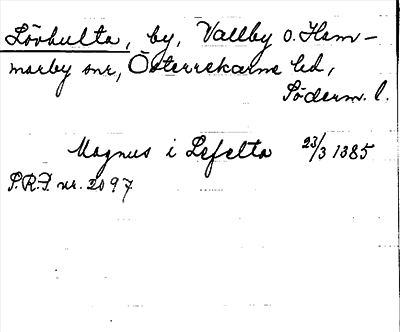 Lövhulta, by, Vallby o. Ham-
marby snr, Österrekarne hd,
Söderm. l.
Magnus i Lefelta 23/3 1385
S.R.P. nr. 2097